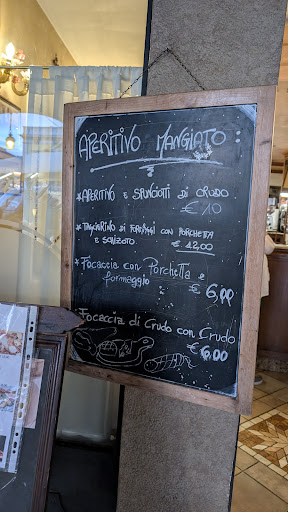 APERITIVO MANGIATO:
* APERITIVO E SPUNCIOTTI DI CRUDO
€ 10
* TAGLIERINO DI FORMAGGI CON PORCHETTA
E € 12,00
* Focaccia con Porchetta e
formaggio € 6,00
Focaccia di Crudo con Crudo